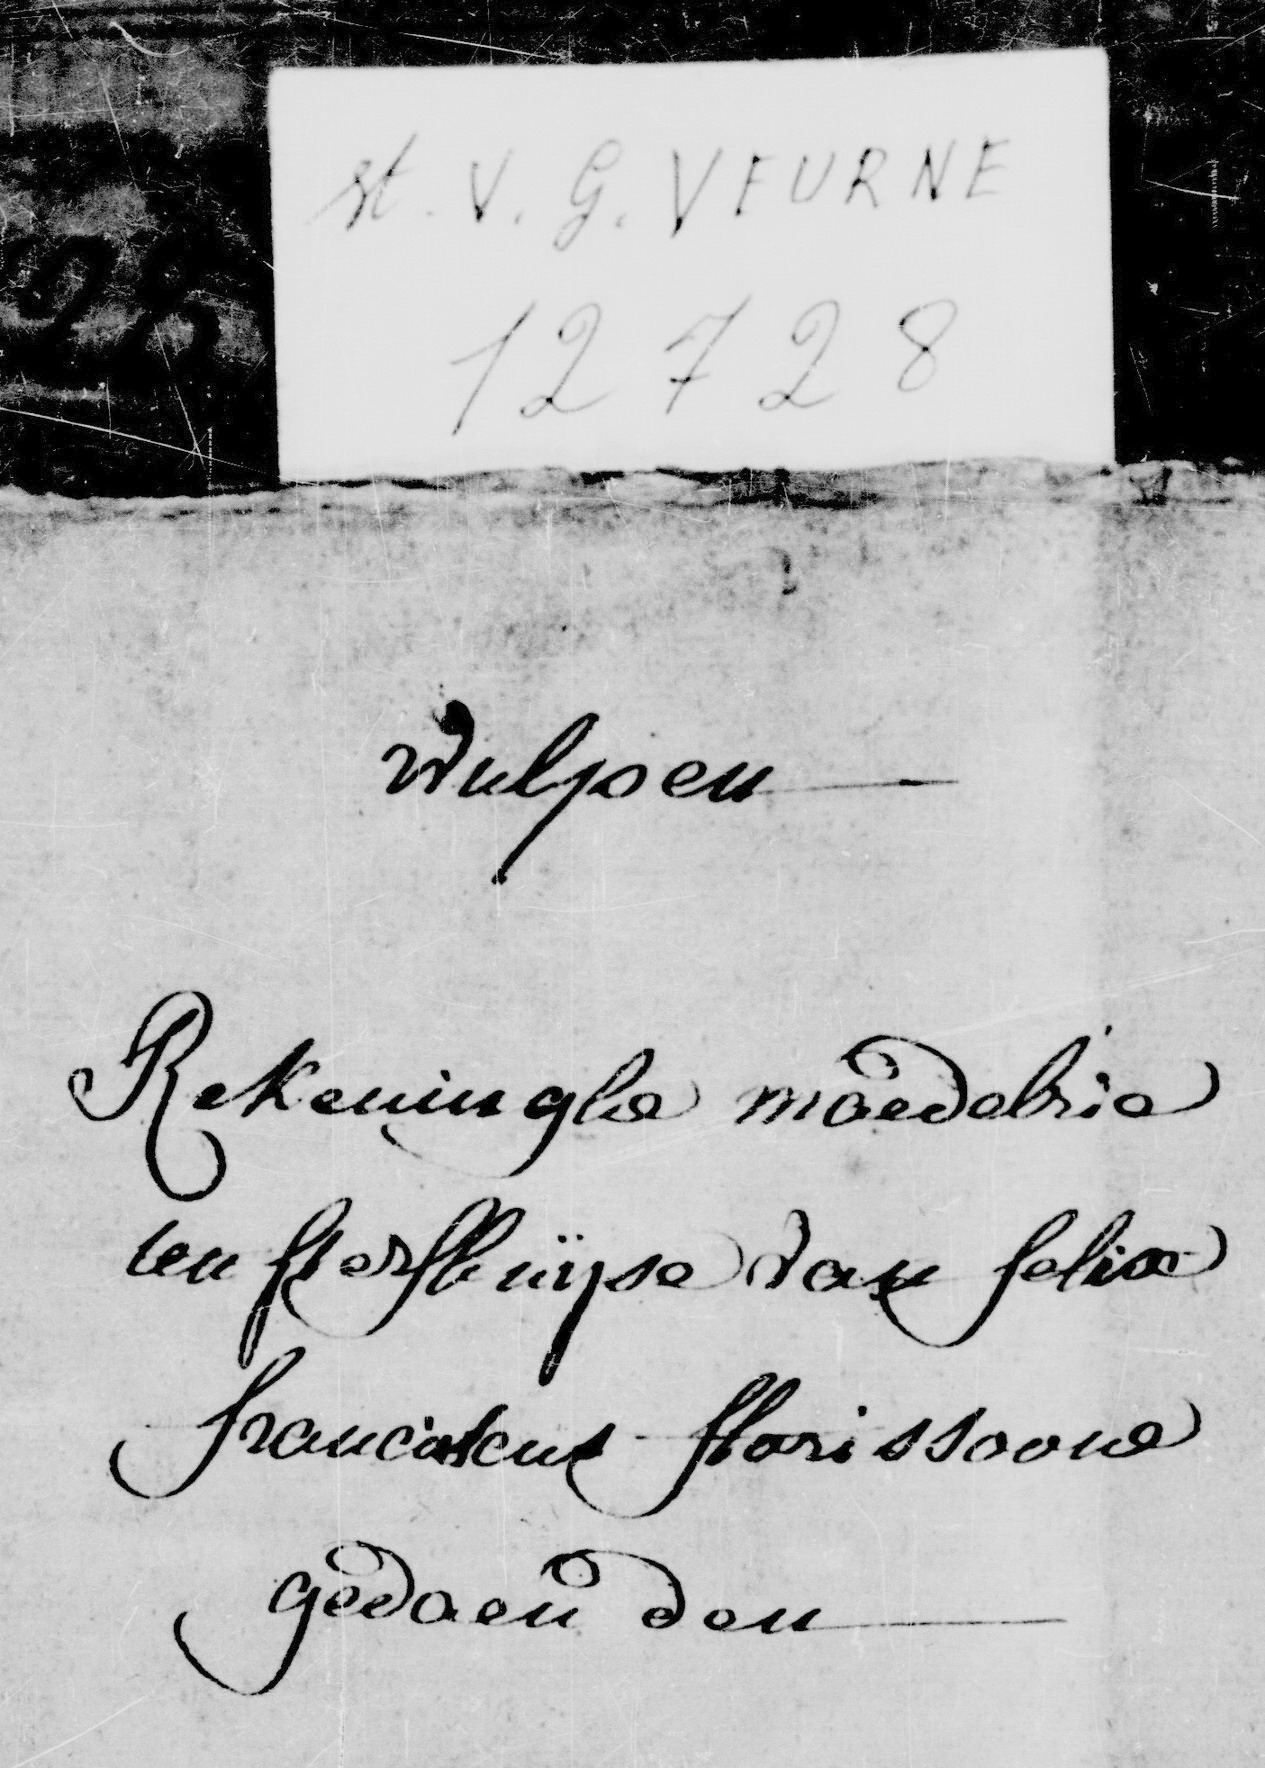 st. V. G. VEURNE
12728
Wulpen
Rekeninghe maedebrie
ten sterfhuÿse van felix
franciscus florissoone
gedaen den